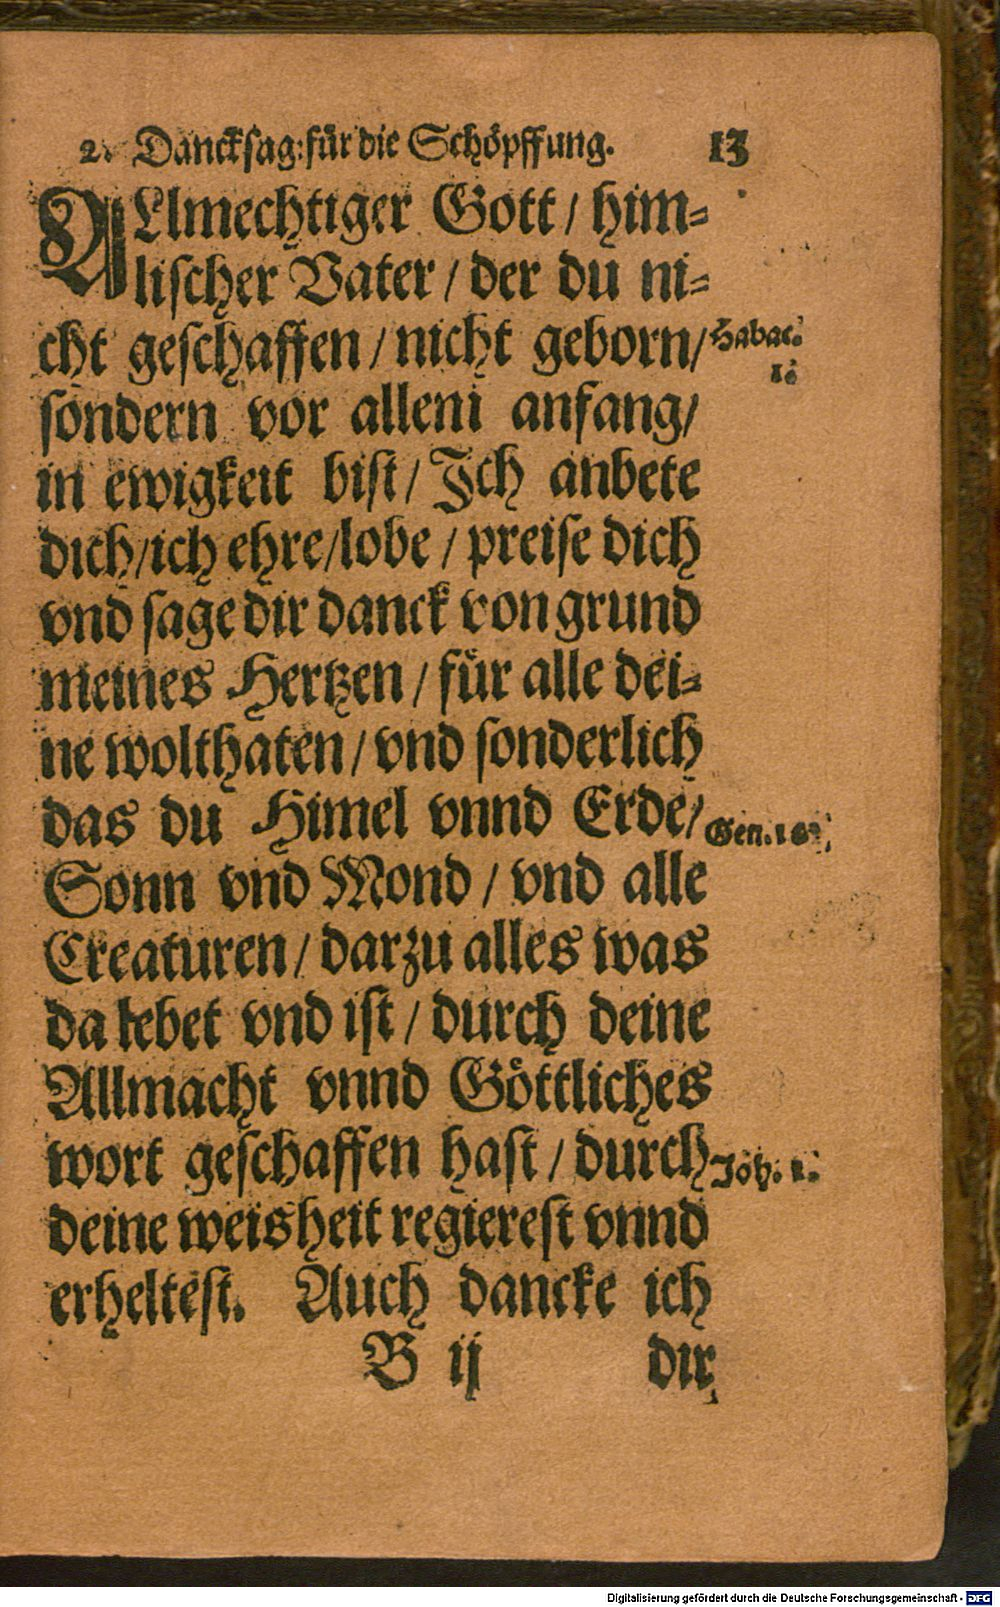 2. Dancksag: für die Schöpffung. 13
ALlmechtiger Gott / him-
lischer Vater / der du ni-
cht geschaffen / nicht geborn / Habac.
1.
sondern vor allem anfang /
in ewigkeit bist / Ich anbete
dich / ich ehre / lobe / preise dich
vnd sage dir danck von grund
meines Hertzen / für alle dei-
ne wolthaten / vnd sonderlich
das du Himel vnnd Erde / Gen. 1.
Sonn vnd Mond / vnd alle
Creaturen / darzu alles was
da lebet vnd ist / durch deine
Allmacht vnnd Göttliches
wort geschaffen hast / durch Joh. 1.
deine weisheit regierest vnnd
erheltest. Auch dancke ich
B ij dir
Digitalisierung gefördert durch die Deutsche Forschungsgemeinschaft - DFG